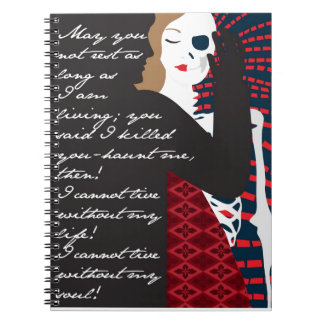 May you
not rest as
long as
I am
living; you
said I killed
you-haunt me,
then!
I cannot live
without my
life!
I cannot live
without my
soul!